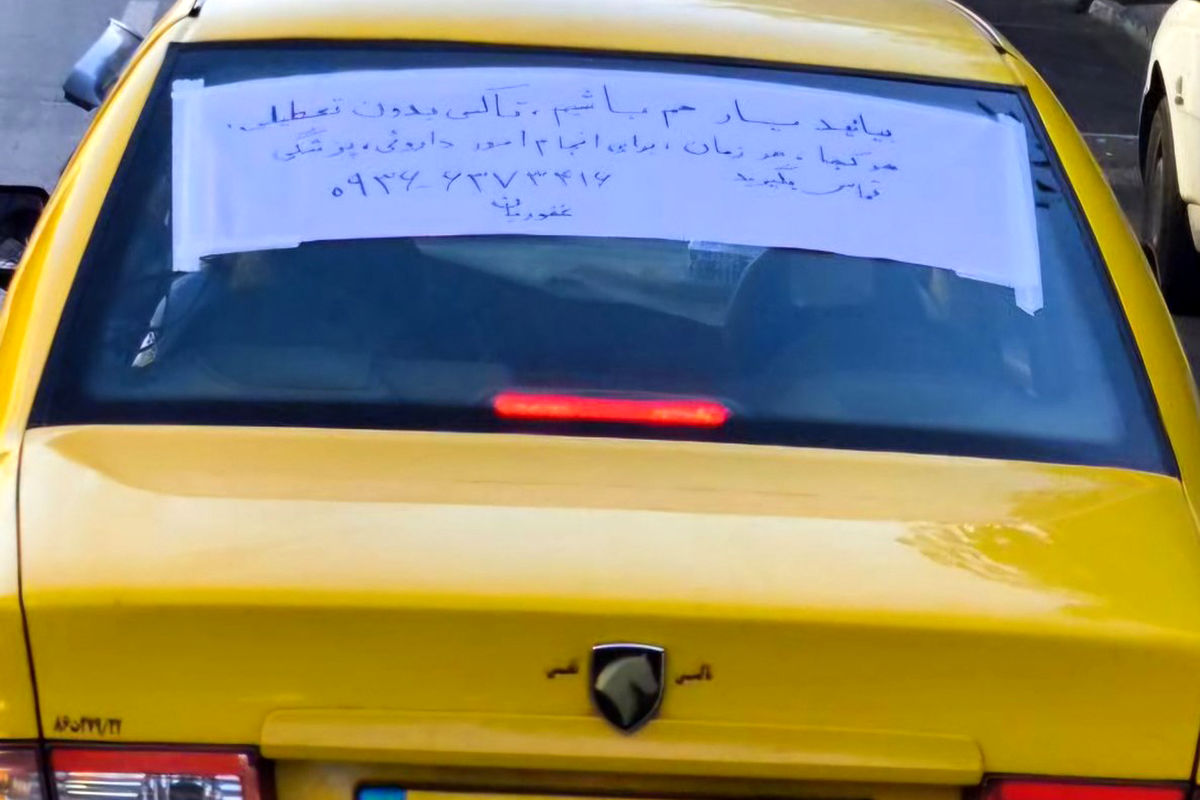 بیائید یار هم باشیم . تاکسی بدون تعطیلی.
هر کجا . هر زمان ، برای انجام امور داروئی ، پزشکی
تماس بگیرید ۰۹۳۶-۶۳۷۳۴۱۶
غفوریان
تاکسی